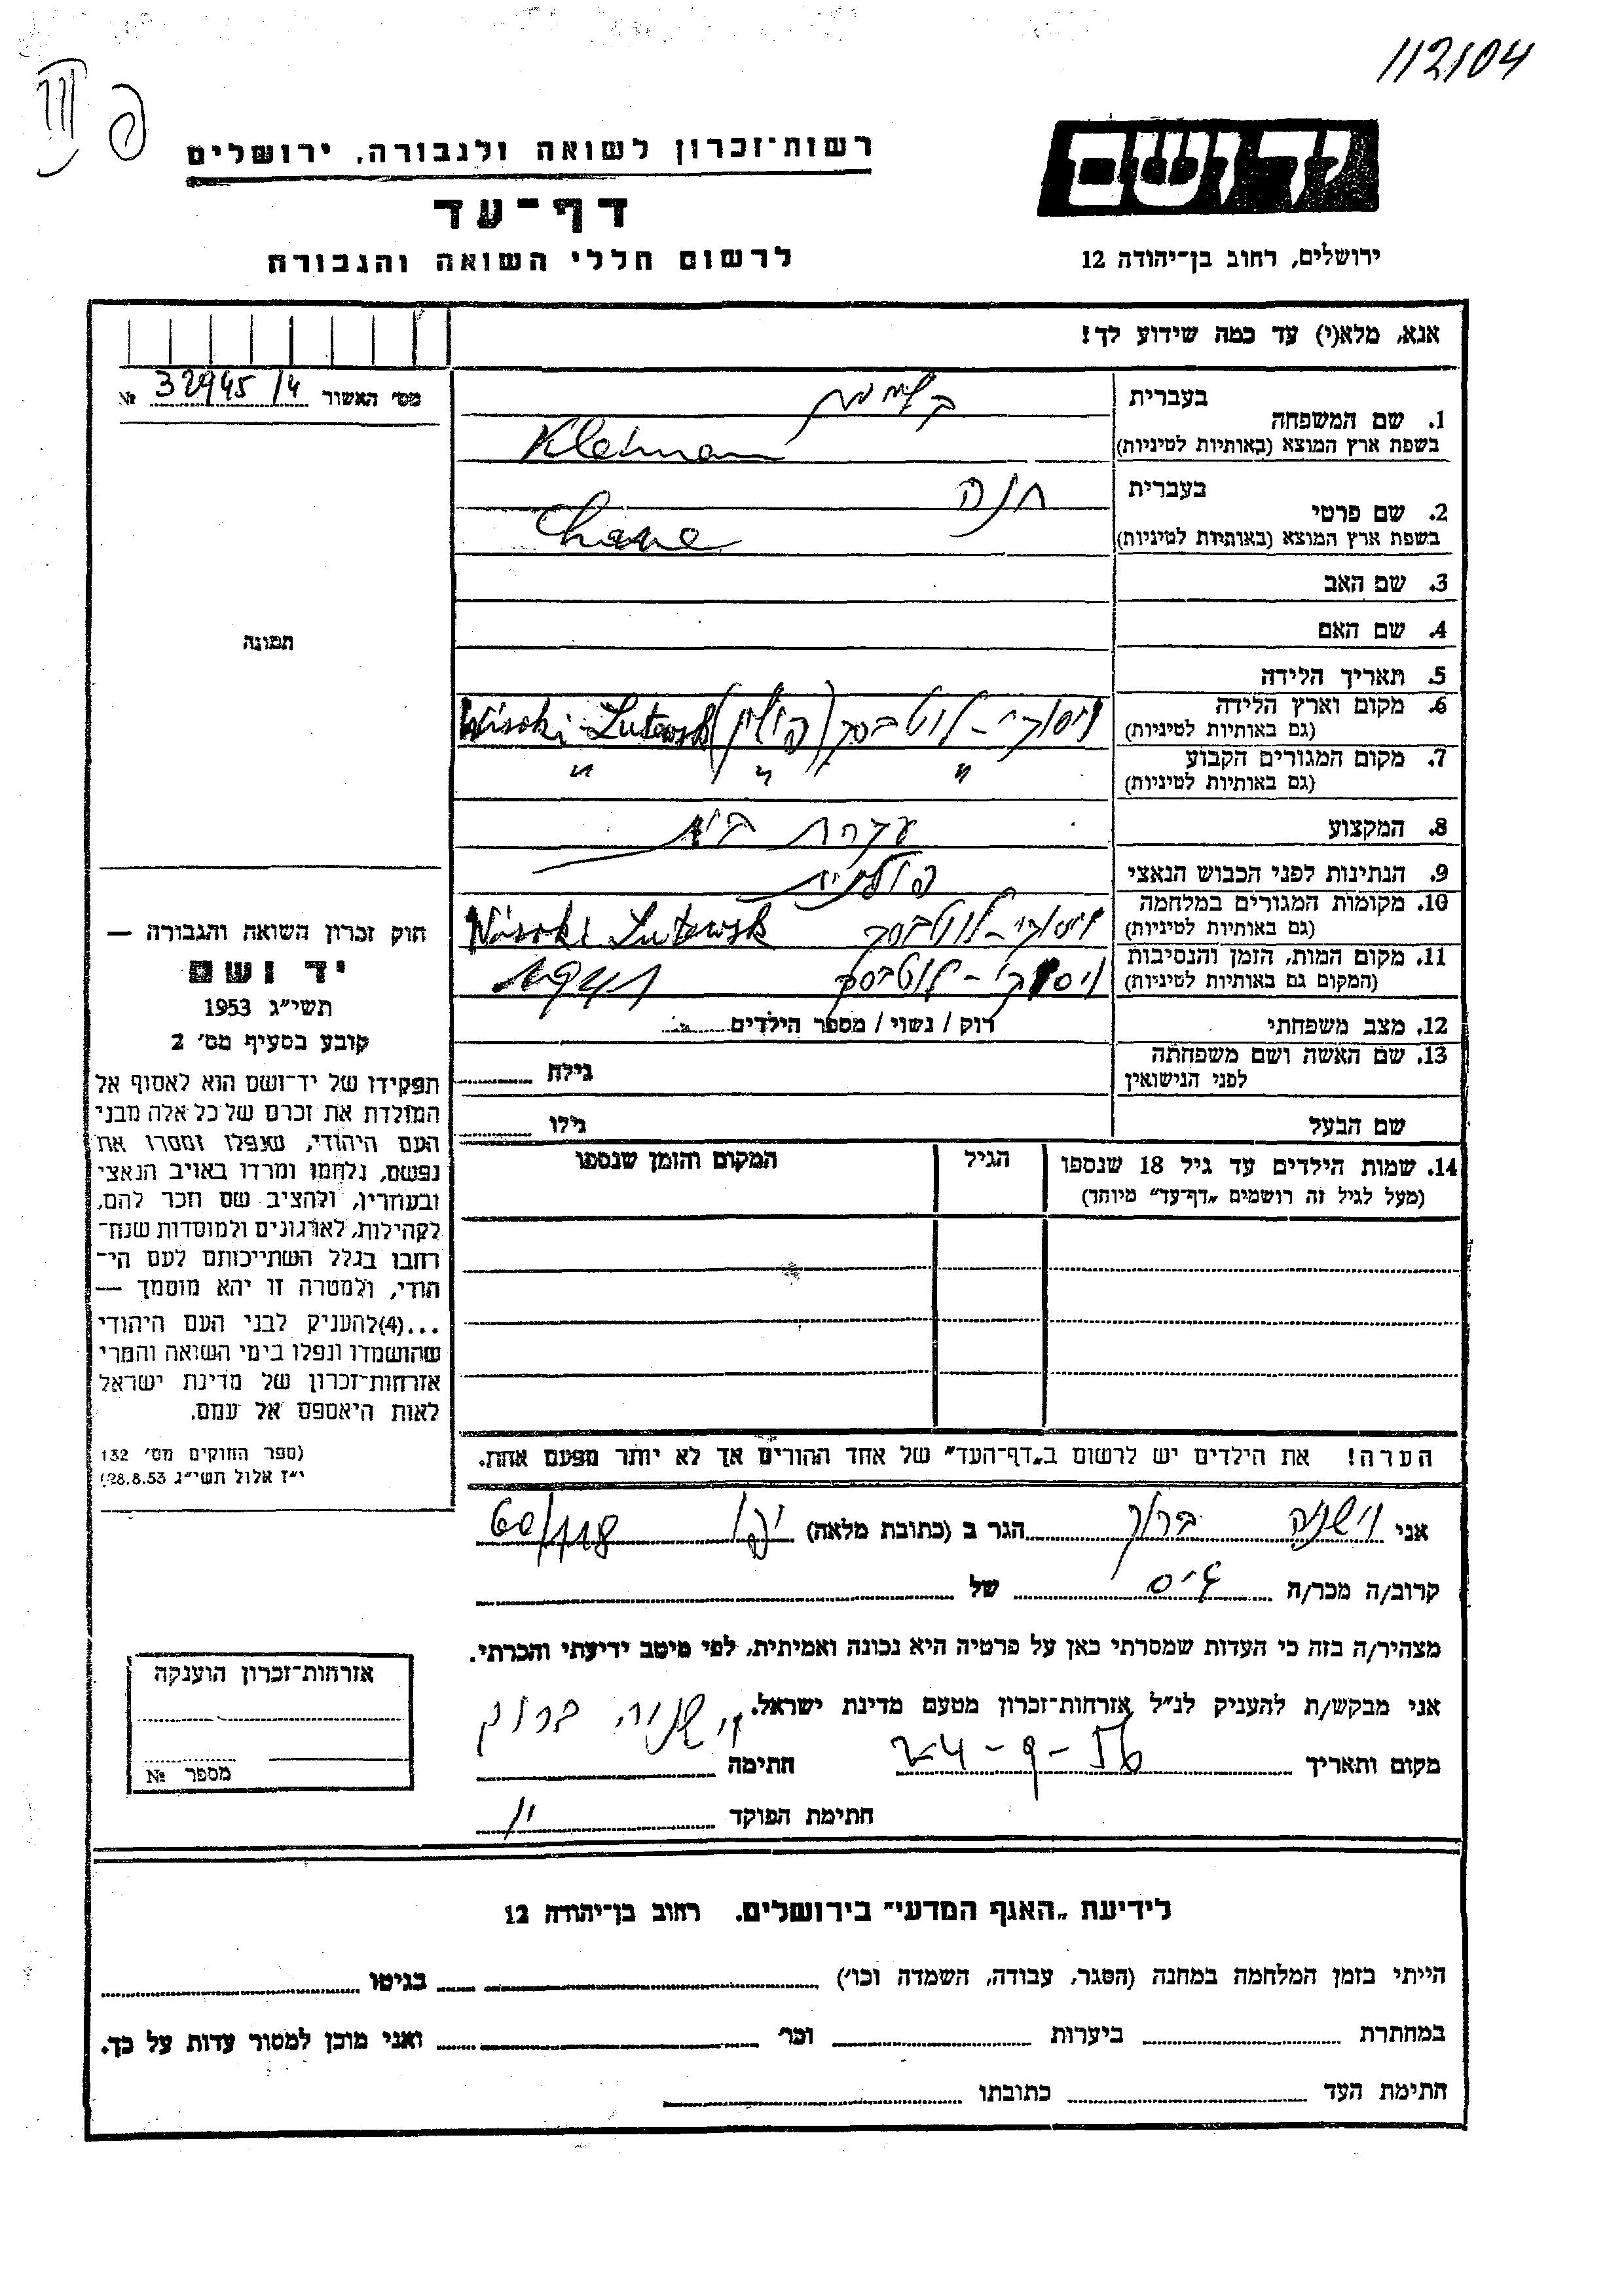 112104
III
יד ושם
רשות־זכרון לשואה ולגבורה, ירושלים
דף־עד
לרשום חללי השואה והגבורה
ירושלים, רחוב בן־יהודה 12
אנא, מלא(י) עד כמה שידוע לך!
מס׳ האשור 32945/4 №
1. שם המשפחה
בעברית
בשפת ארץ המוצא (באותיות לטיניות) Kleiman
2. שם פרטי
בעברית חנה
בשפת ארץ המוצא (באותיות לטיניות) Chane
3. שם האב
4. שם האם
5. תאריך הלידה
6. מקום וארץ הלידה ויסוקי-לוטבסק (פולין) Wisoki-Lutewsk
(גם באותיות לטיניות)
7. מקום המגורים הקבוע " " "
(גם באותיות לטיניות)
8. המקצוע עקרת בית
9. הנתינות לפני הכבוש הנאצי פולנית
10. מקומות המגורים במלחמה ויסוקי-לוטבסק Wisoki Lutewsk
(גם באותיות לטיניות)
11. מקום המות, הזמן והנסיבות ויסוקי-לוטבסק 1941
(המקום גם באותיות לטיניות)
12. מצב משפחתי רוק / נשוי / מספר הילדים
13. שם האשה ושם משפחתה
לפני הנישואין
גילה
שם הבעל גילו
14. שמות הילדים עד גיל 18 שנספו
(מעל לגיל זה רושמים „דף־עד״ מיוחד)
הגיל
המקום והזמן שנספו
הערה! את הילדים יש לרשום ב„דף־העד״ של אחד ההורים אך לא יותר מפעם אחת.
תמונה
חוק זכרון השואה והגבורה —
יד ושם
תשי״ג 1953
קובע בסעיף מס׳ 2
תפקידו של יד־ושם הוא לאסוף אל
המולדת את זכרם של כל אלה מבני
העם היהודי, שנפלו ומסרו את
נפשם, נלחמו ומרדו באויב הנאצי
ובעוזריו, ולהציב שם וזכר להם,
לקהילות, לארגונים ולמוסדות שנח־
רבו בגלל השתייכותם לעם הי־
הודי, ולמטרה זו יהא מוסמך —
...(4) להעניק לבני העם היהודי
שהושמדו ונפלו בימי השואה והמרי
אזרחות־זכרון של מדינת ישראל
לאות היאספם אל עמם.
(ספר החוקים מס׳ 132
י״ז אלול תשי״ג 28.8.53)
אני וישניה ברוך הגר ב (כתובת מלאה) יפו 60/118
קרוב/ה מכר/ה גיס של
מצהיר/ה בזה כי העדות שמסרתי כאן על פרטיה היא נכונה ואמיתית, לפי מיטב ידיעתי והכרתי.
אני מבקש/ת להעניק לנ״ל אזרחות־זכרון מטעם מדינת ישראל.
מקום ותאריך 24-9-56 חתימה וישניה ברוך
חתימת הפוקד
אזרחות־זכרון הוענקה
מספר №
לידיעת „האגף המדעי״ בירושלים. רחוב בן־יהודה 12
הייתי בזמן המלחמה במחנה (הסגר, עבודה, השמדה וכו׳) בגיטו
במחתרת ביערות וכו׳ ואני מוכן למסור עדות על כך.
חתימת העד כתובתו